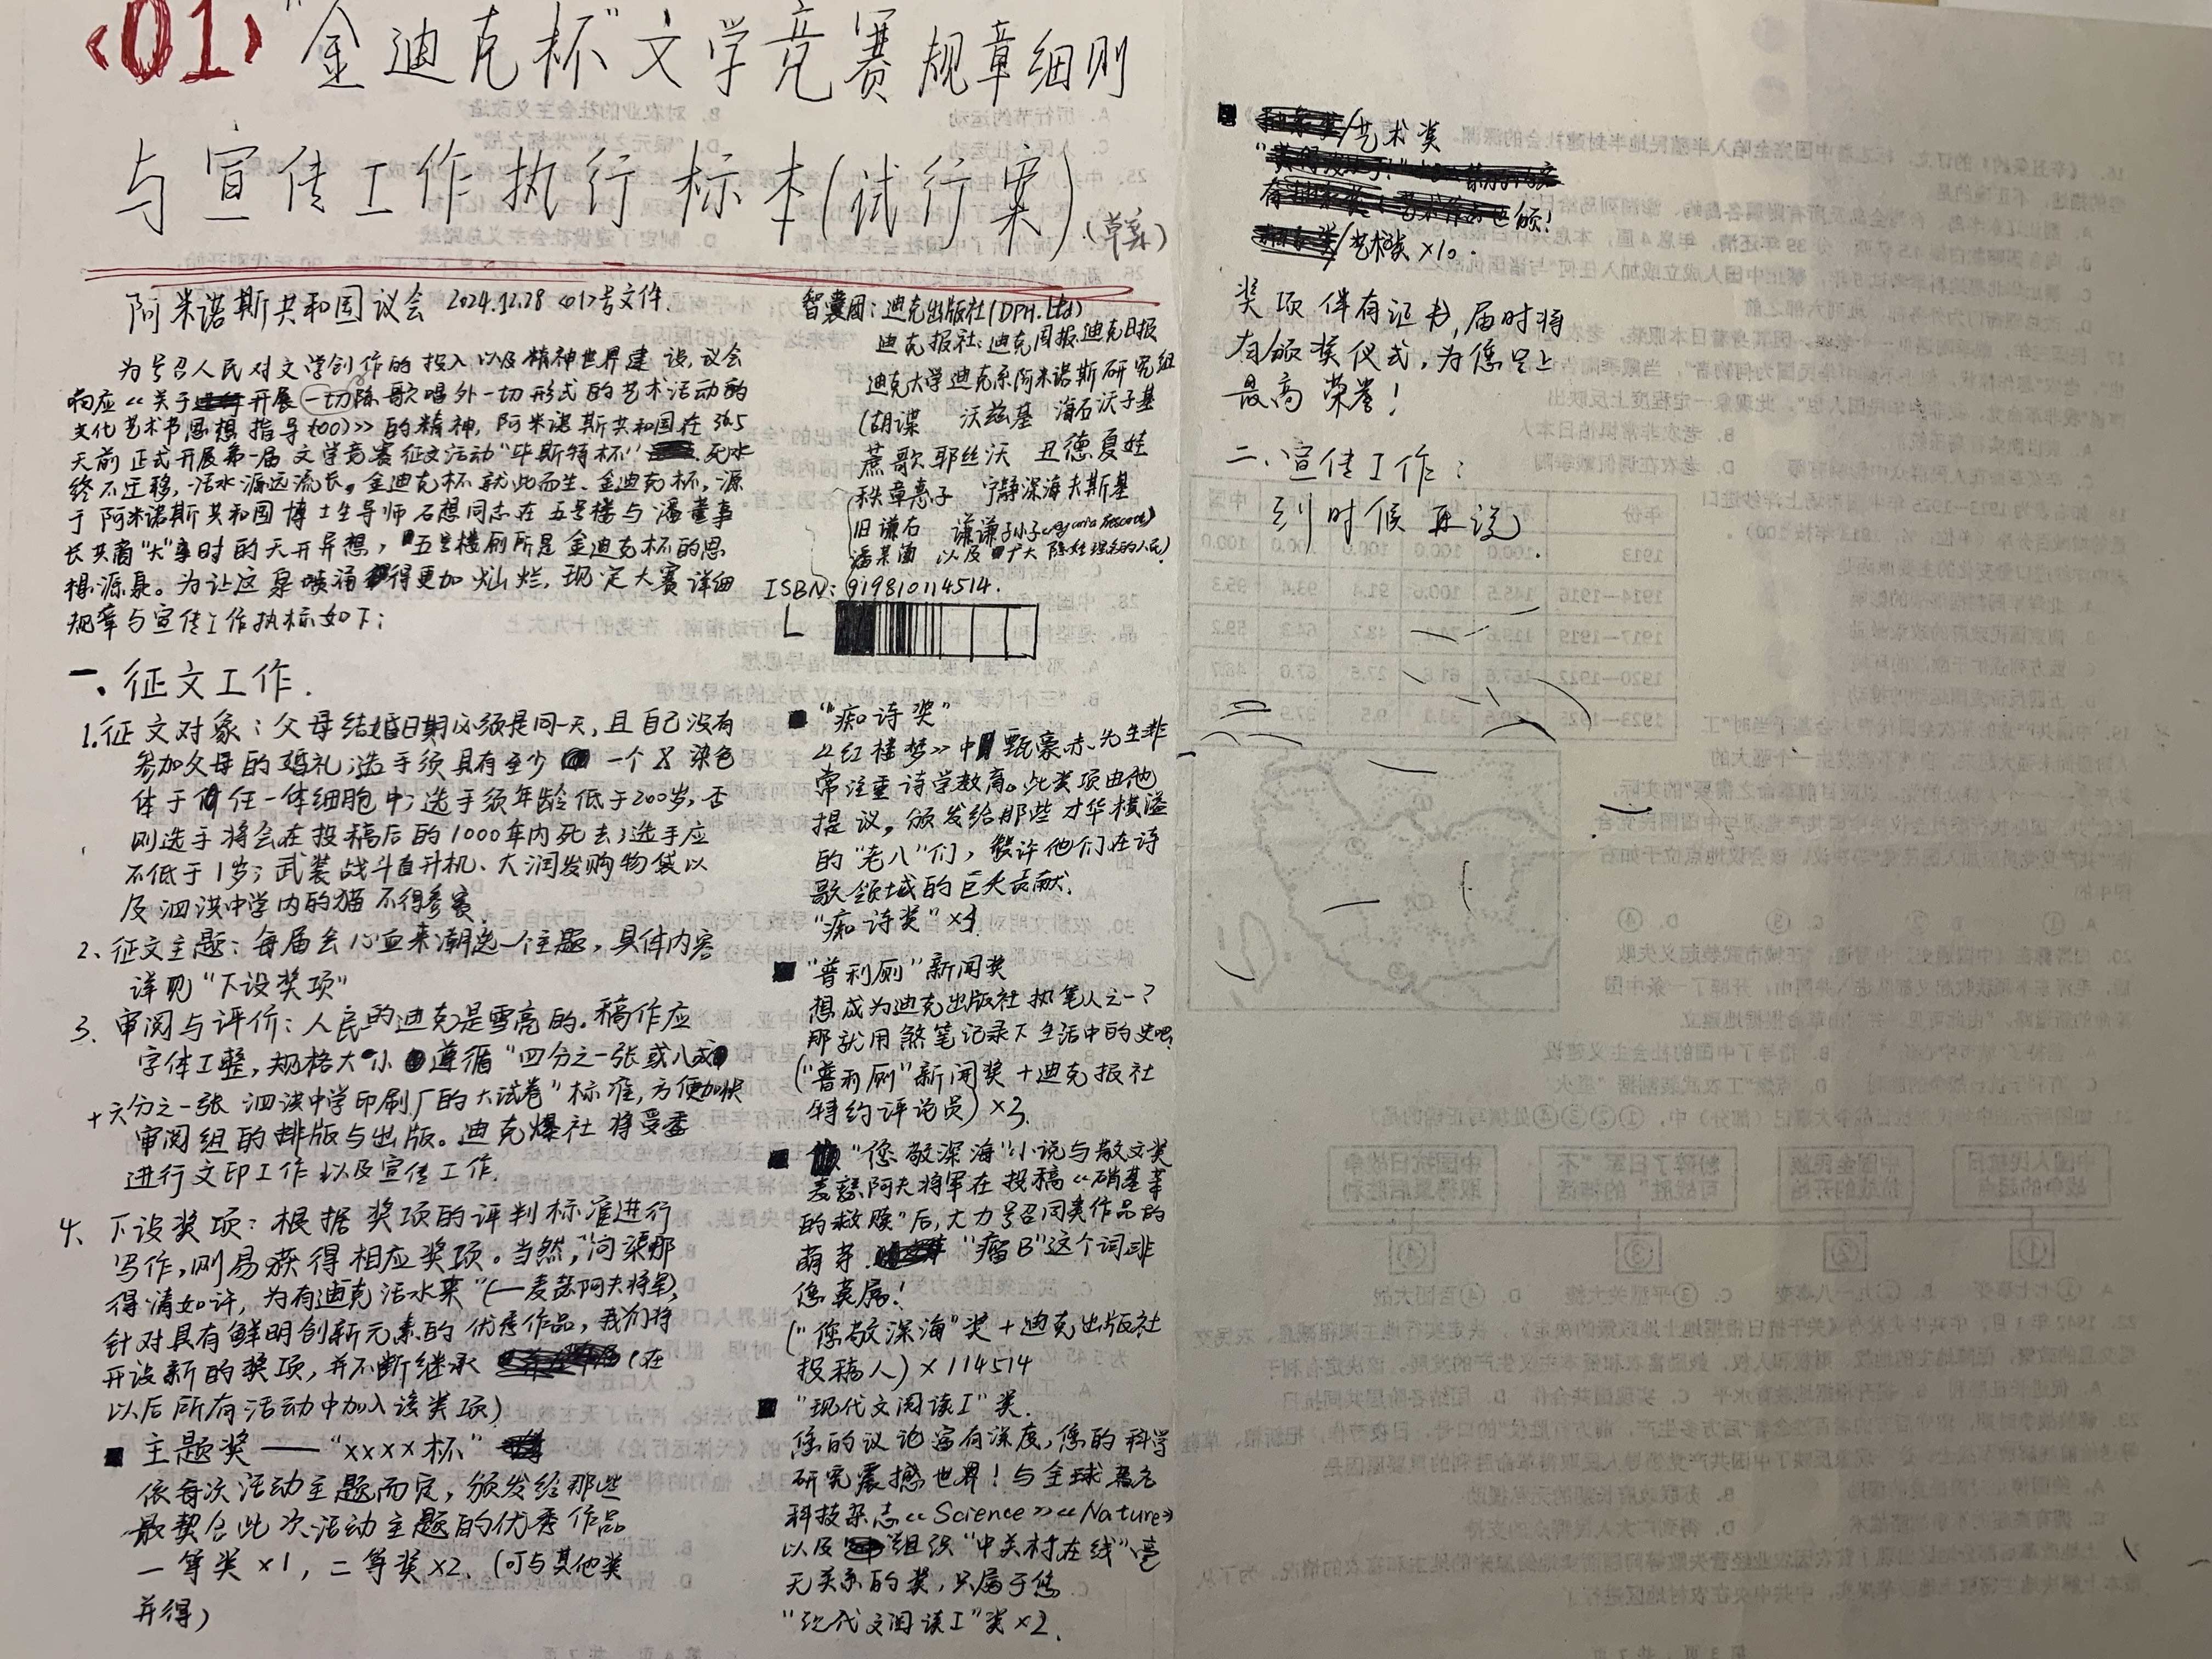 <01> "金迪克杯"文学竞赛规章细则
与宣传工作执行标本(试行案)(草案)
阿米诺斯共和国议会 2024.12.28 <01>号文件.
为号召人民对文学创作的投入以及精神世界建设,议会
响应《关于开展一切除歌唱外一切形式的艺术活动的
文化艺术节思想指导(00)》的精神,阿米诺斯共和国在365
天前正式开展第一届文学竞赛征文活动"毕斯特杯" 死水
终不迁移,活水源远流长。金迪克杯就此而生.金迪克杯,源
于阿米诺斯共和国博士生导师石想同志在五号楼与潘董事
长共商"大"事时的天开异想,五号楼厕所是金迪克杯的思
想源泉。为让这泉喷涌得更加灿烂,现定大赛详细
规章与宣传工作执标如下:
一、征文工作.
1.征文对象:父母结婚日期必须是同一天,且自己没有
参加父母的婚礼;选手须具有至少一个X染色
体于任一体细胞中;选手须年龄低于200岁,否
则选手将会在投稿后的1000年内死去;选手应
不低于1岁;武装战斗直升机、大润发购物袋以
及泗洪中学内的猫不得参赛.
2、征文主题:每届会心血来潮选一个主题,具体内容
详见"下设奖项"
3、审阅与评价:人民的迪克是雪亮的.稿作应
字体工整,规格大小遵循"四分之一张或八或
十六分之一张泗洪中学印刷厂的大试卷"标准,方便加快
审阅组的排版与出版。迪克爆社将受委
进行文印工作以及宣传工作.
4、下设奖项:根据奖项的评判标准进行
写作,则易获得相应奖项。当然,"问渠那
得清如许,为有迪克活水来"(—麦瑟阿夫将军),
针对具有鲜明创新元素的优秀作品,我们将
开设新的奖项,并不断继承(在
以后所有活动中加入该类项)
■ 主题奖——"xxxx杯"
依每次活动主题而定,颁发给那些
最契合此次活动主题的优秀作品
一等类×1,二等奖×2.(可与其他类
并得)
智囊团:迪克出版社(DPH.Ltd)
迪克报社:迪克周报,迪克日报
迪克大学迪克系阿米诺斯研究组
(胡谍 沃兹基 海石沃子基
蔗歌耶丝沃 丑德夏娃
秩章惠子 宁静深海夫斯基
旧谦右 谦谦子小子
潘某菌 以及广大 的人民)
ISBN:919810114514.
■ "痴诗奖"
《红楼梦》中甄豪赤先生非
常注重诗学教育。此类项由他
提议,颁发给那些才华横溢
的"老八"们,赞许他们在诗
歌领域的巨大贡献.
"痴诗奖"×4
■ "普利厕"新闻奖
想成为迪克出版社执笔人之一?
那就用煞笔记录下生活中的史吧!
("普利厕"新闻奖+迪克报社
特约评论员)×3.
■ "您敬深海"小说与散文奖
麦瑟阿夫将军在投稿《硝基苯
的救赎》后,大力号召同类作品的
萌芽. "瘤B"这个词非
您莫属!
("您敬深海"奖+迪克出版社
投稿人)×114514
■ "现代文阅读I"类.
您的议论富有深度,您的科学
研究震撼世界!与全球著名
科技杂志《Science》《Nature》
以及组织"中关村在线"毫
无关系的奖,只属于您
"现代文阅读I"类×2.
■ /艺术类
颁!
/艺术类×10.
奖项伴有证书,届时将
有颁奖仪式,为您呈上
最高荣誉!
二、宣传工作:
到时候再说